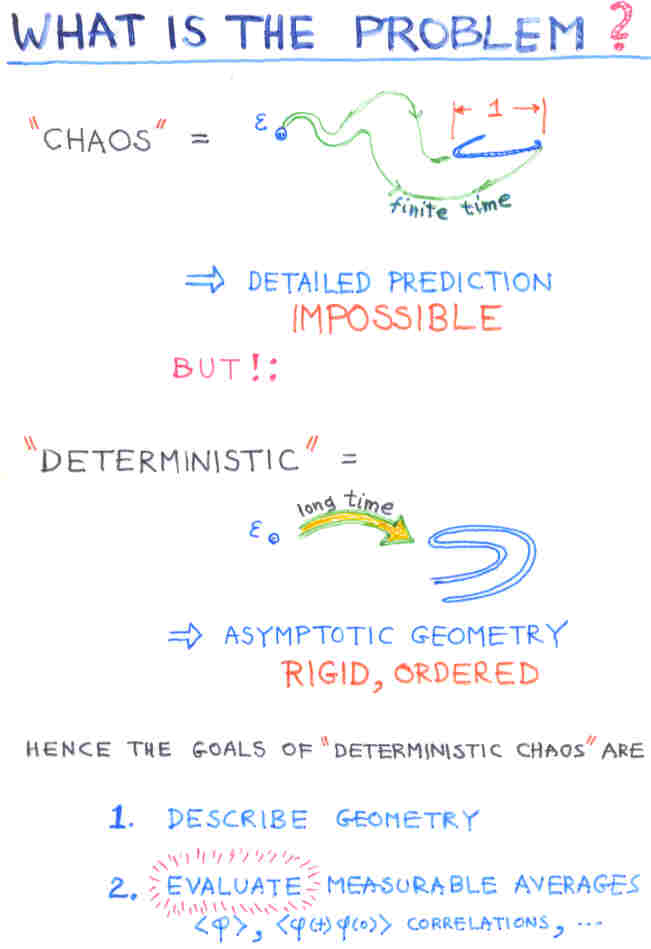 WHAT IS THE PROBLEM?
"CHAOS" =
ε
1
finite time
⇒ DETAILED PREDICTION
IMPOSSIBLE
BUT!:
"DETERMINISTIC" =
long time
ε
⇒ ASYMPTOTIC GEOMETRY
RIGID, ORDERED
HENCE THE GOALS OF "DETERMINISTIC CHAOS" ARE
1. DESCRIBE GEOMETRY
2. EVALUATE MEASURABLE AVERAGES
<φ>, <φ(t)φ(0)> CORRELATIONS, ...